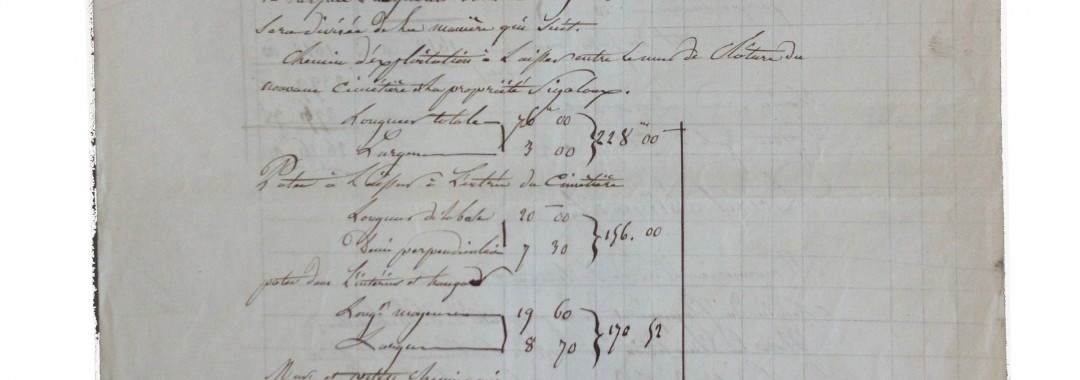 sera divisée de la manière qui suit.
Chemin d'exploitation à laisser entre le mur de Clôture du
nouveau cimetière et la propriété
Longueur totale 76 00
Largeur 3 00 } 228 00
à laisser à l'entrée du Cimetière
Longueur de la base 20 00
Demi perpendiculaire 7 30 } 156. 00
dans l'intérieur et
Longr moyenne 19 60
Largeur 8 70 } 170 52